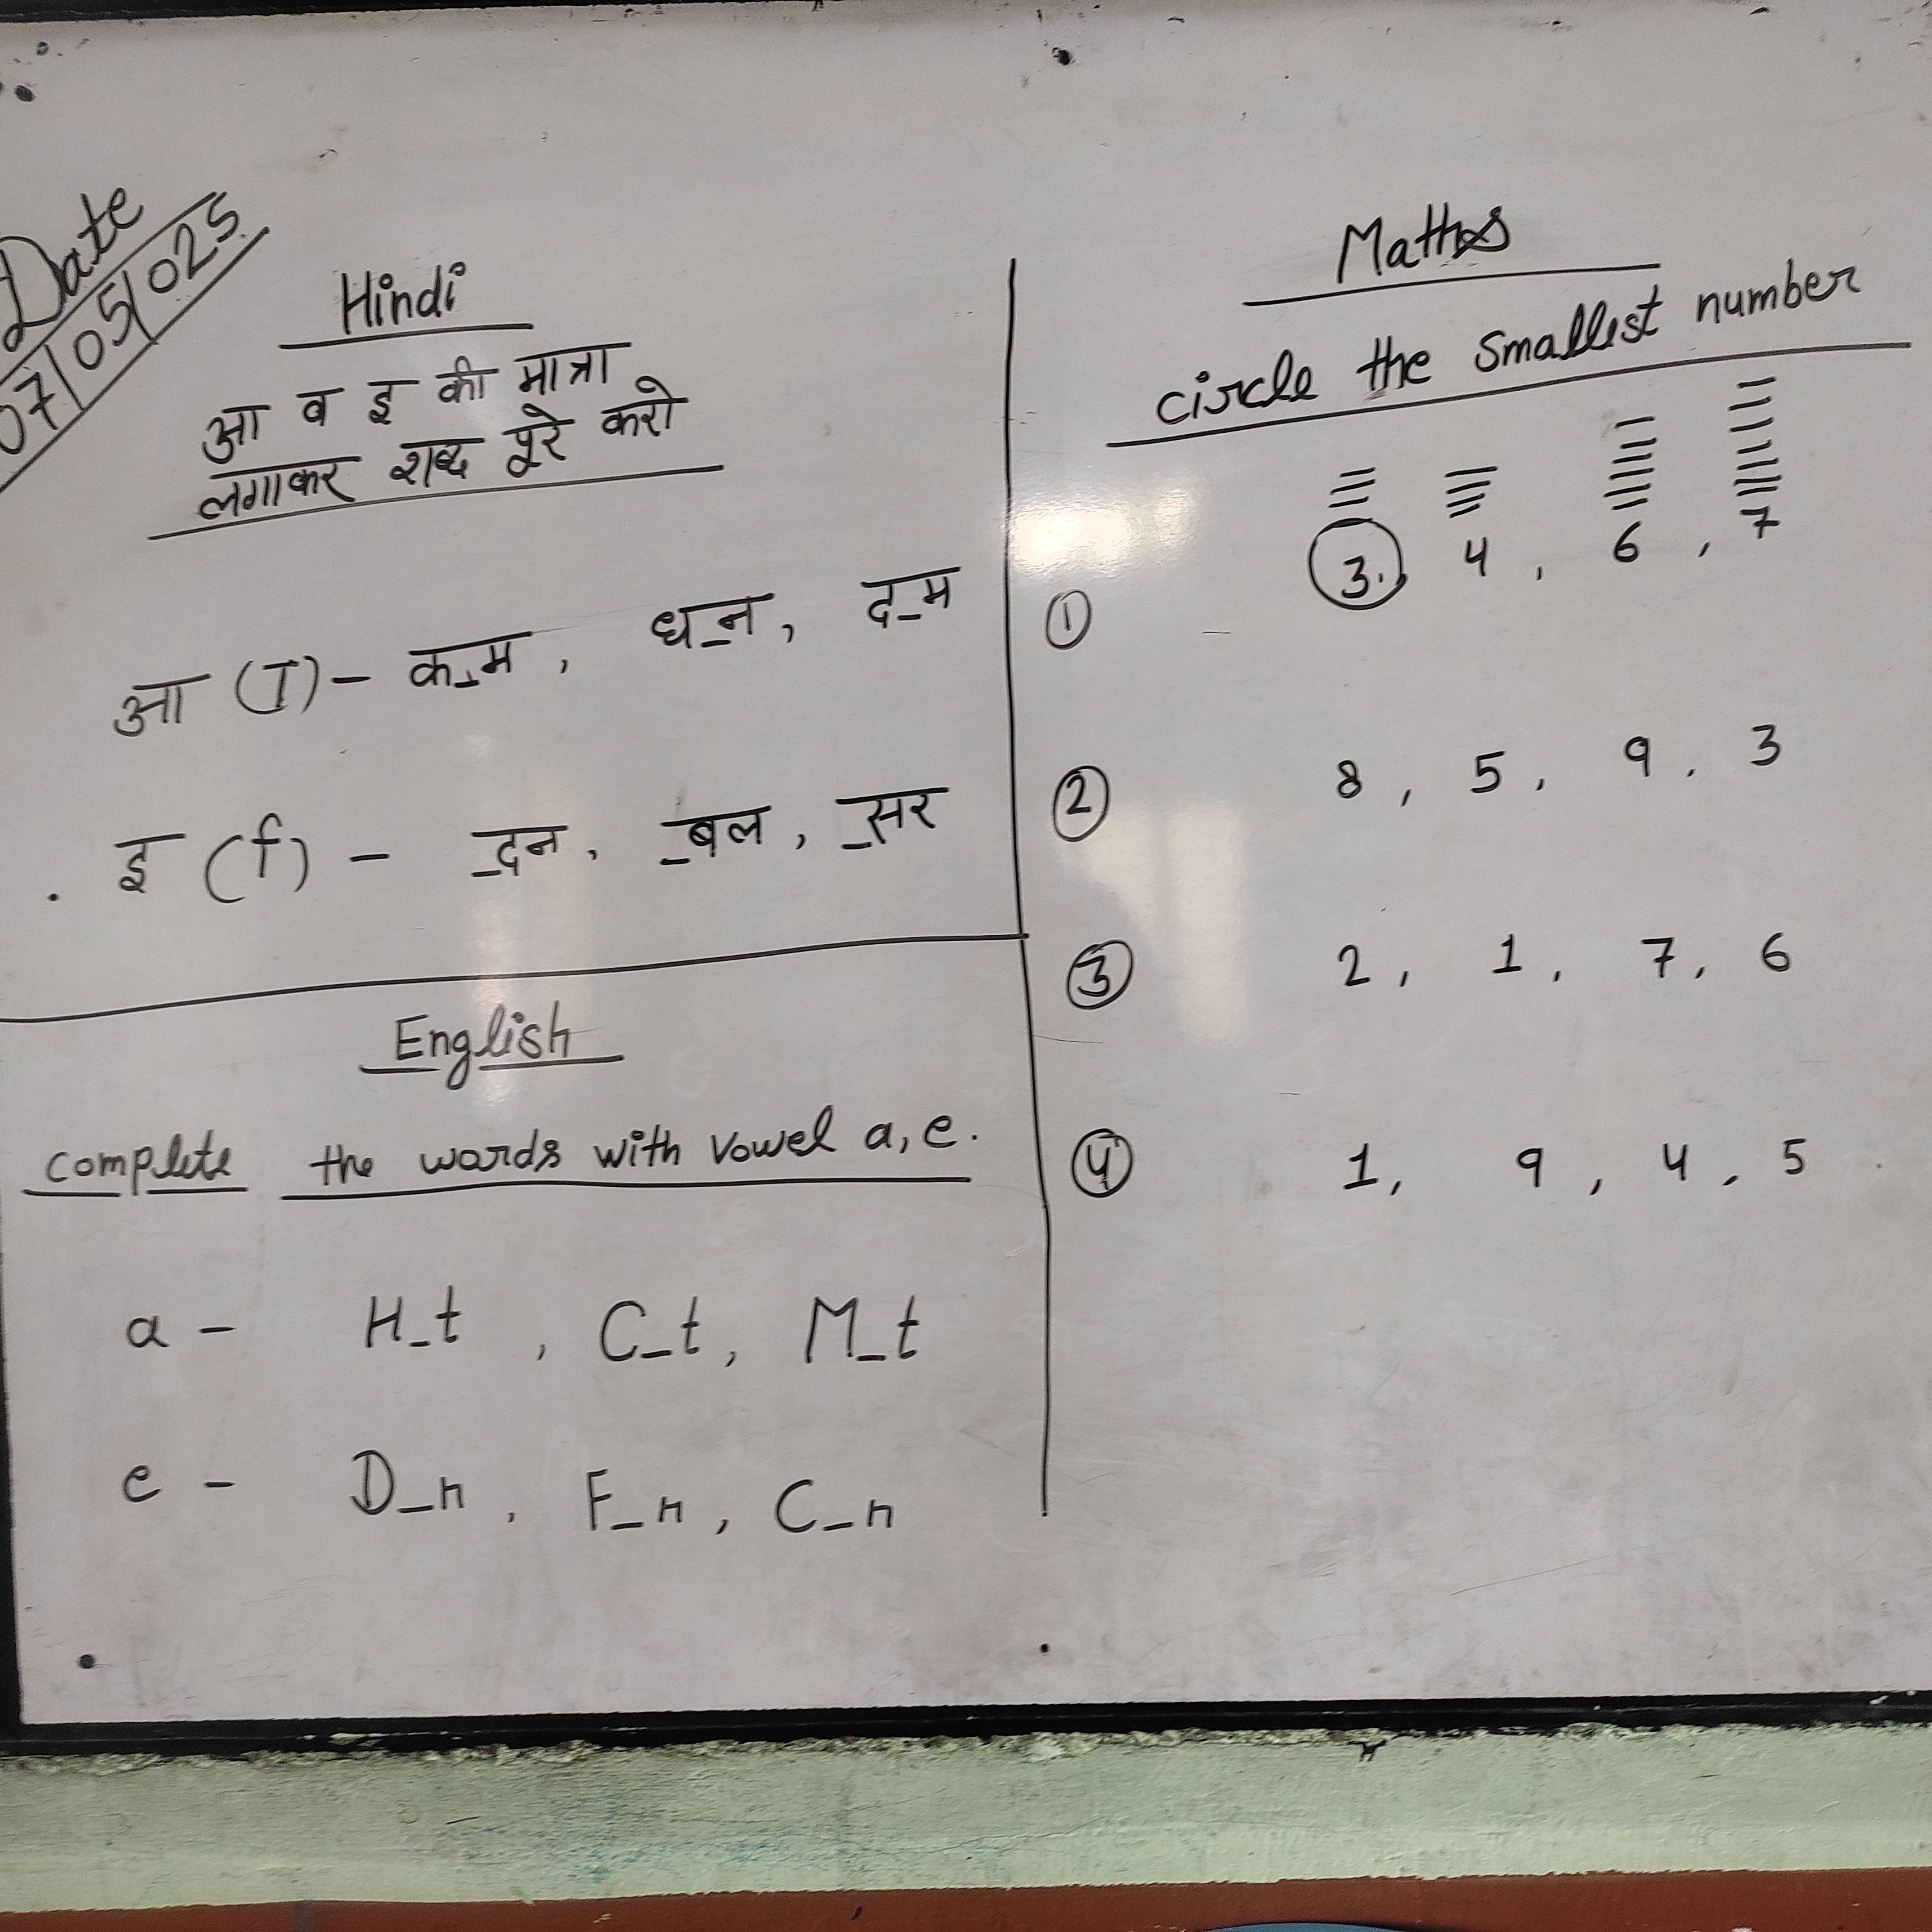 Date
07/05/025
Hindi
आ व इ की मात्रा
लगाकर शब्द पूरे करो
आ (ा) - क_म, ध_न, द_म
इ (ि) - _दन, _बल, _सर
English
Complete the words with vowel a, e.
a - H_t, C_t, M_t
e - D_n, F_n, C_n
Maths
circle the smallest number
① 3, 4, 6, 7
② 8, 5, 9, 3
③ 2, 1, 7, 6
④ 1, 9, 4, 5